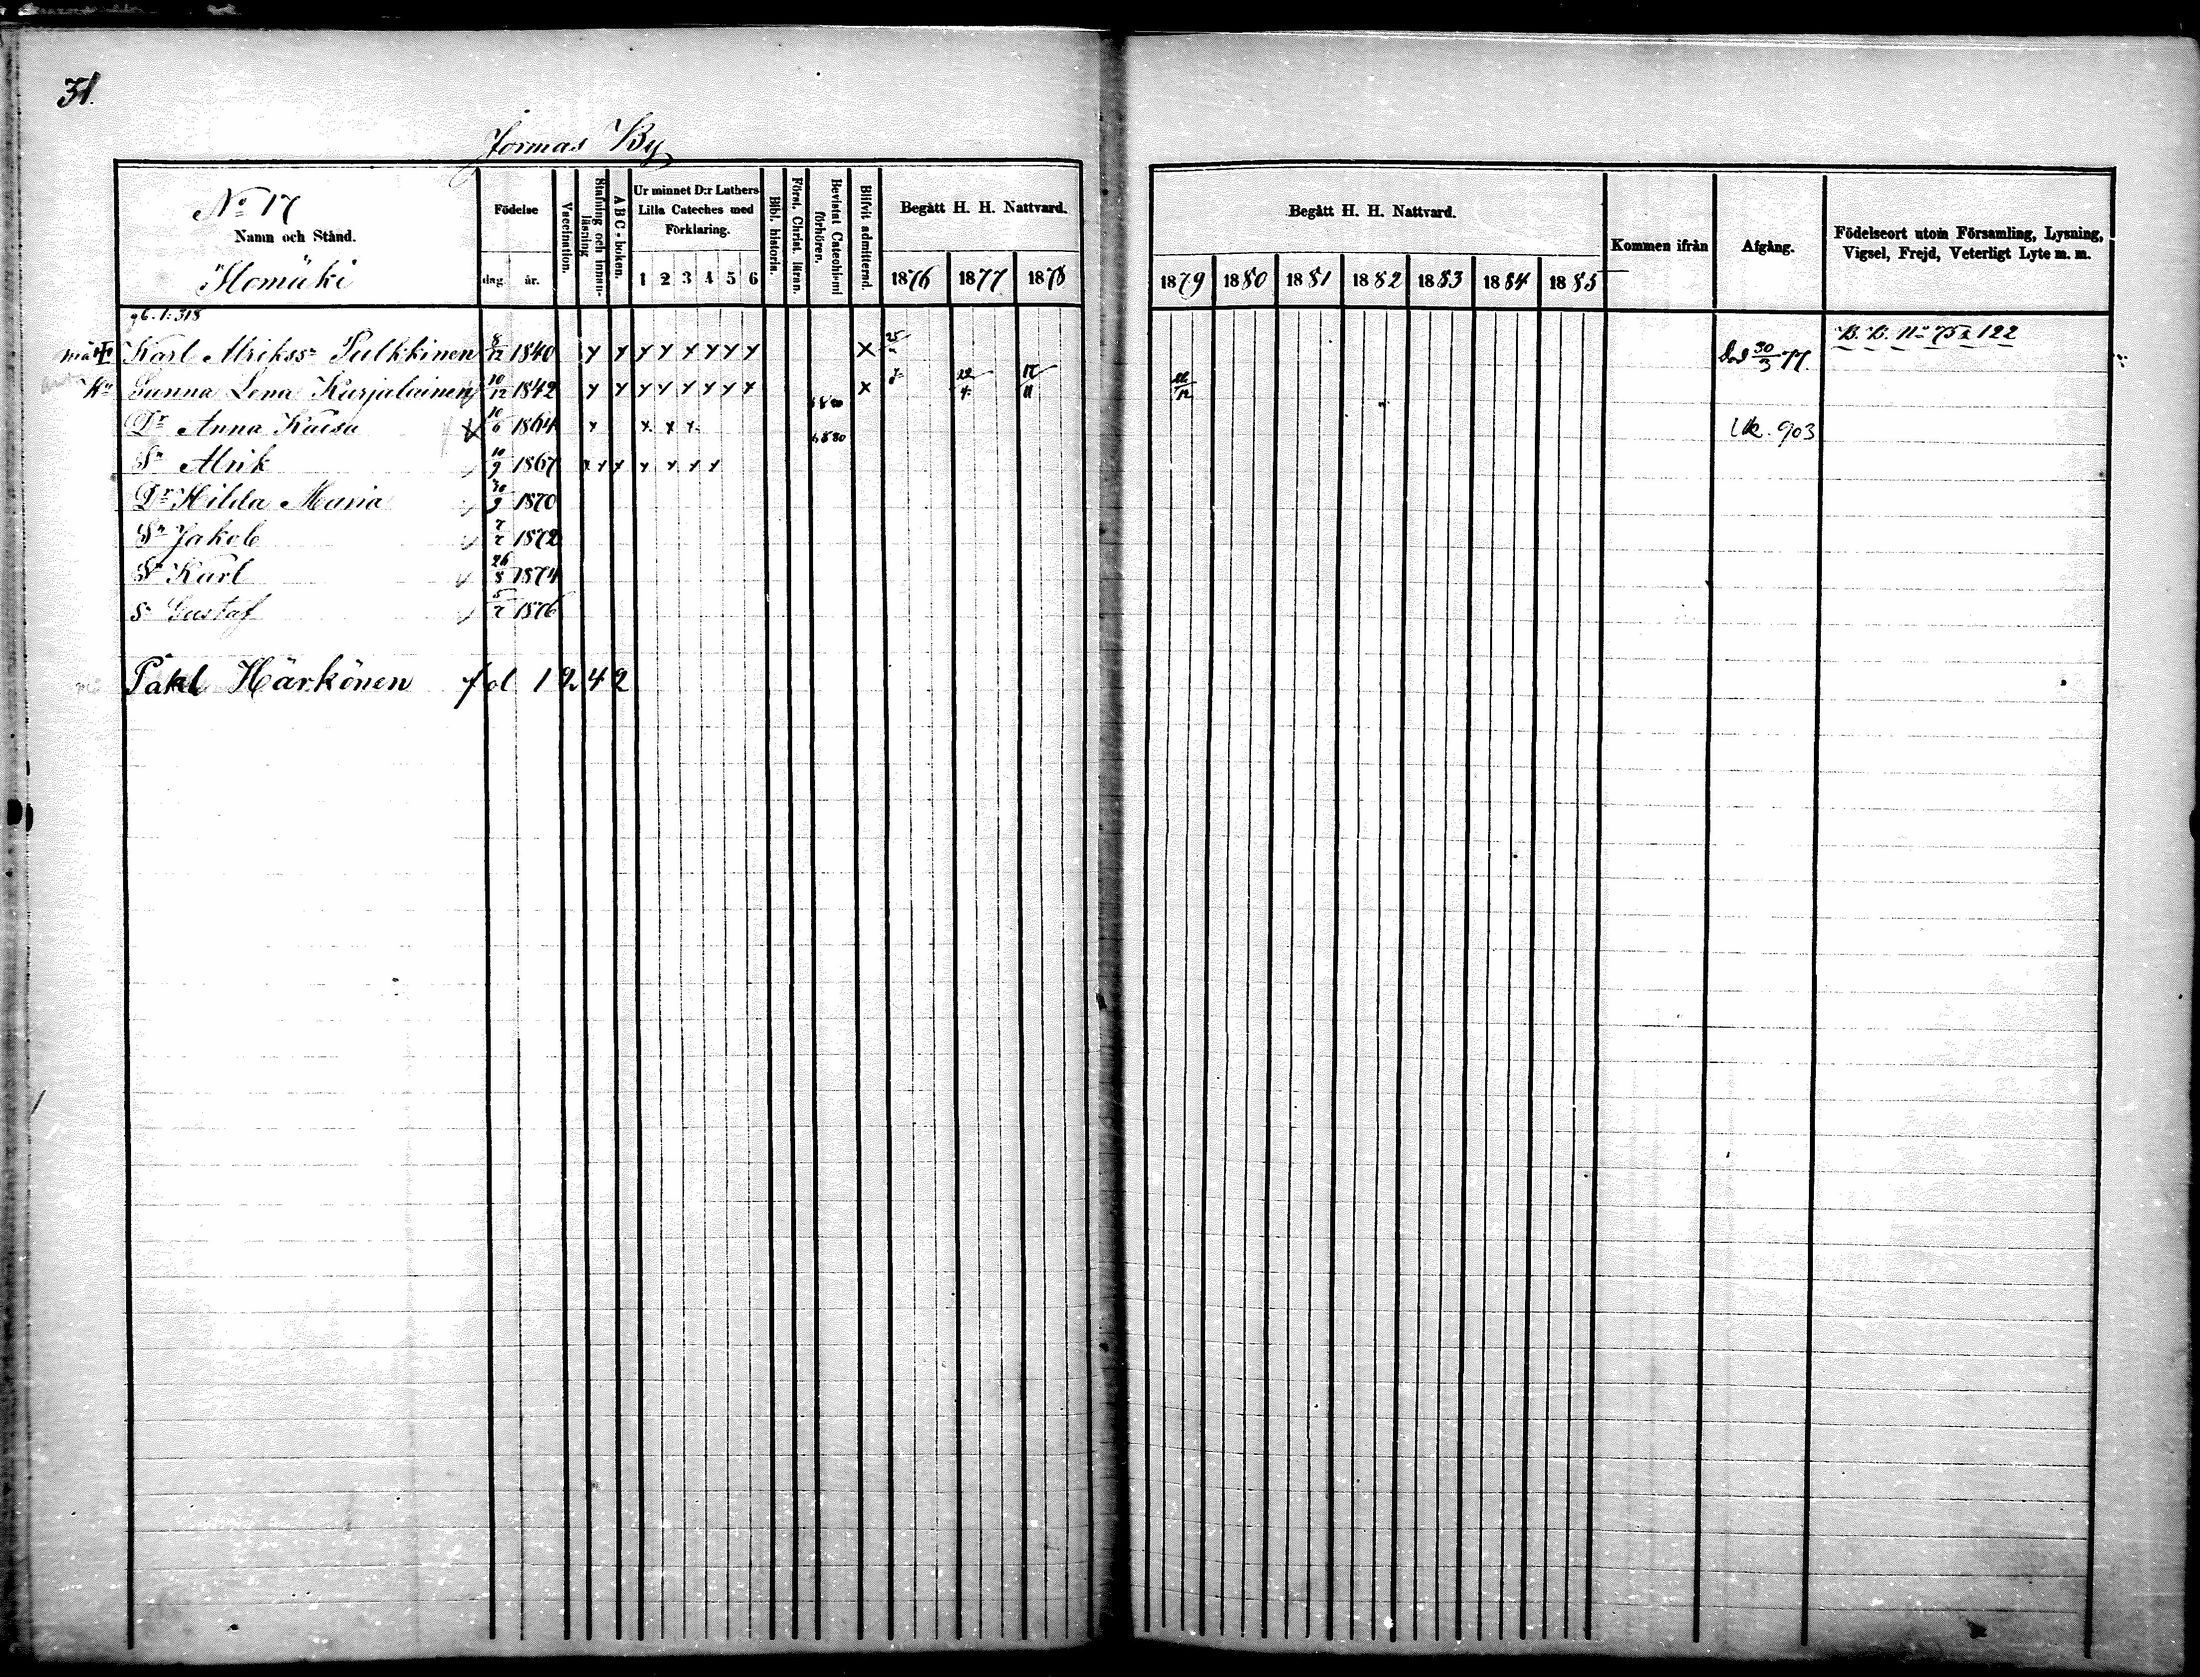 31.
Jormas By
No 17
Namn och Stånd.
Homäki
Födelse
dag. år.
Vaccination.
Stafning och innan-läsning
A B C-boken.
Ur minnet D:r Luthers Lilla Cateches med Förklaring.
1 2 3 4 5 6
Bibl. historia.
Först. Christ. läran.
Bevistat Catechismi förhören.
Blifvit admitterad.
Begått H. H. Nattvard.
1876 1877 1878
Begått H. H. Nattvard.
1879 1880 1881 1882 1883 1884 1885
Kommen ifrån
Afgång.
Födelseort utom Församling, Lysning, Vigsel, Frejd, Veterligt Lyte m. m.
Karl Alrikss Pulkkinen 8/12 1840 x x x x x x x x x 25 död 30/3 77. B. B. No 75 & 122
Hu Sanna Lena Karjalainen 10/12 1842 x x x x x x x x x 22/4 17/11 22/12
Dr Anna Kaisa 10/6 1864 x x x x 1880 Uk. 903
Sn Alrik 10/9 1867 x x x x x x x 1880
Dr Hilda Maria 30/9 1870
Sn Jakob 7/2 1872
Sn Karl 26/8 1874
Sn Gustaf 5/2 1876
Påkl Härkönen fol 1242